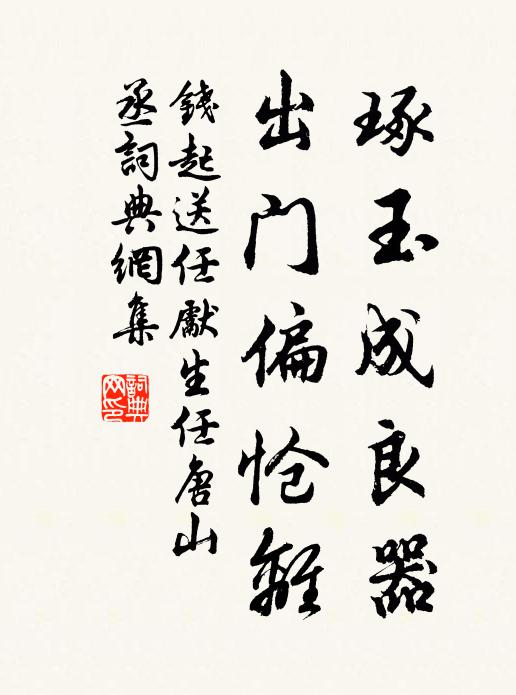 琢玉成良器
出门偏怆離
錢起送任獻生任唐山
丞詞典網集
詞典网印